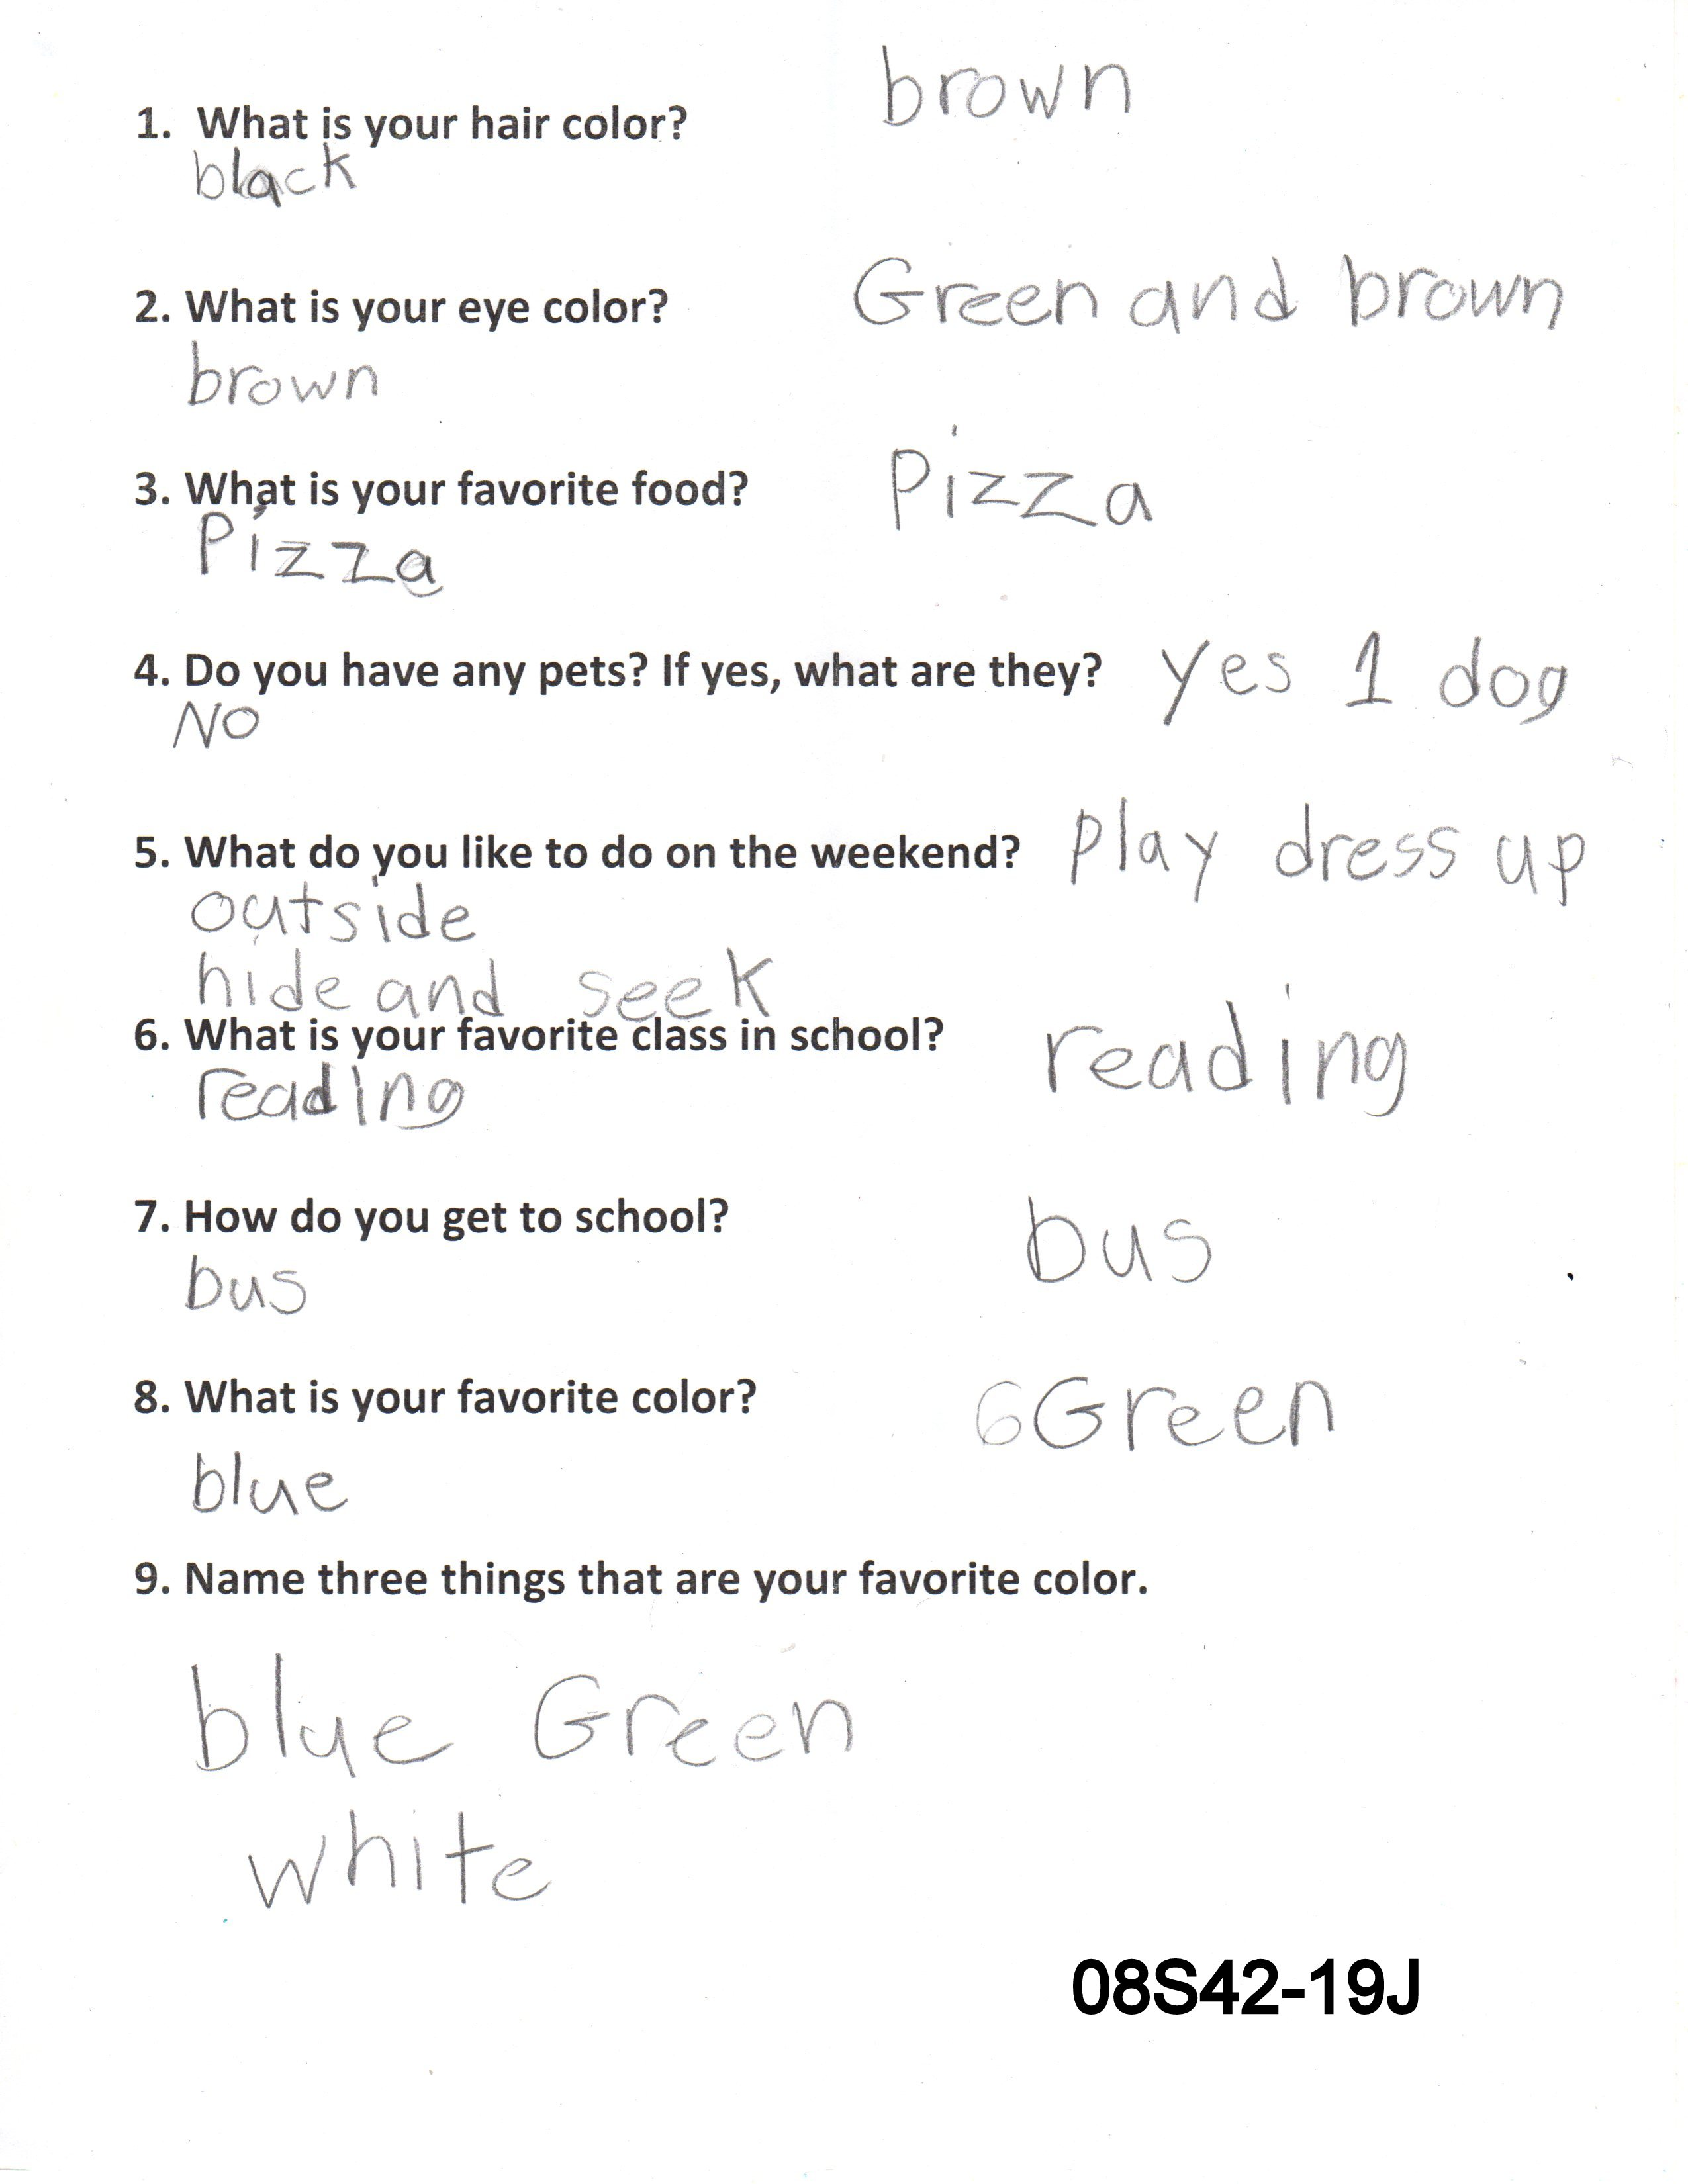 brown
1. What is your hair color?
black
2. What is your eye color? Green and brown
brown
3. What is your favorite food? Pizza
Pizza
4. Do you have any pets? If yes, what are they? yes 1 dog
NO
5. What do you like to do on the weekend? play dress up
outside
hide and seek
6. What is your favorite class in school? reading
reading
7. How do you get to school? bus
bus
8. What is your favorite color? GGreen
blue
9. Name three things that are your favorite color.
blue Green
white
08S42-19J